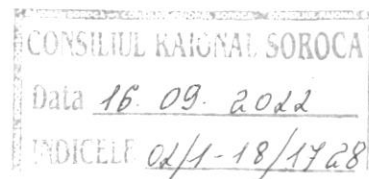 CONSILIUL RAIONAL SOROCA
Data 16. 09. 2022
INDICELE 02/1-18/1728